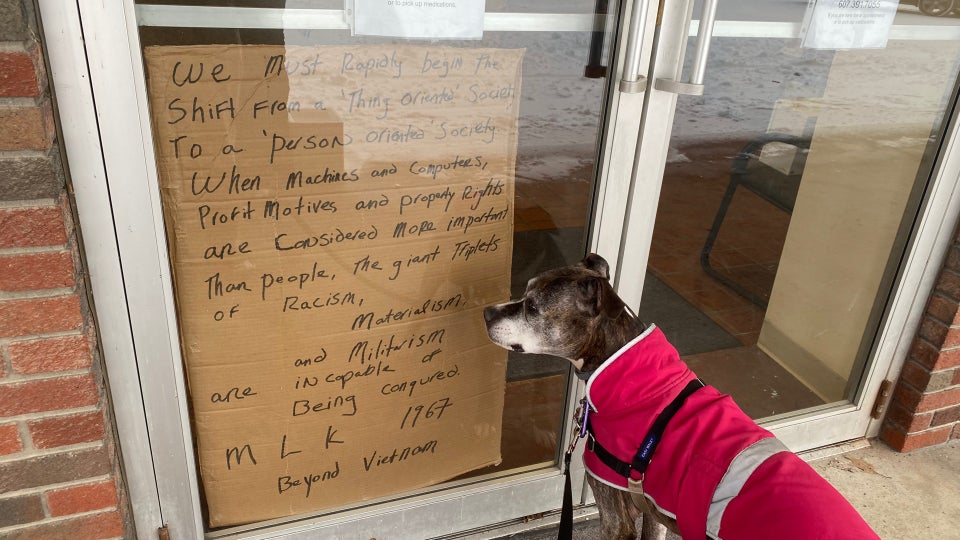 or to pick up medications.
607.391.7055
WE MUST Rapidly begin The
Shift From a 'Thing oriented' Society
To a 'person oriented' Society
When Machines and Computers,
Profit Motives and property Rights
are Considered More important
Than people, The giant Triplets
of Racism,
Materialism,
and Militarism
are incapable of
Being conqured.
MLK 1967
Beyond Vietnam